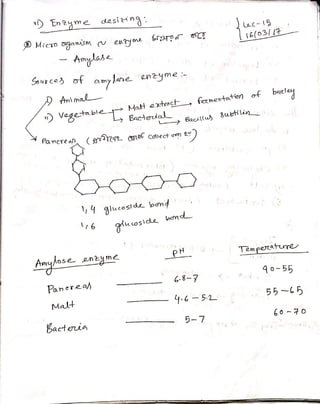 Lec-15
16/03/17
1) Enzyme desizing:
Micro organism ~ enzyme
- Amylase
Sources of amylase enzyme:-
i) Animal
ii) Vegetable
Malt extract → fermentation of barley
Bacterial → Bacillus subtilin
Pancreas ( collect )
1,4 glucoside bond
1,6 glucoside bond
Amylose enzyme pH Temperature
Pancreas 6.8-7 40-55
Malt 4.6-5.2 55-65
Bacteria 5-7 60-70